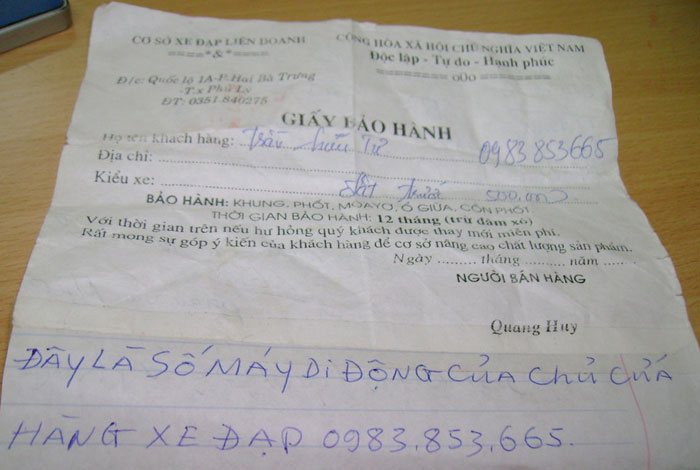 CƠ SỞ XE ĐẠP LIÊN DOANH
====*&*====
Đ/c: Quốc lộ 1A-P.Hai Bà Trưng
-T.x Phủ Lý
ĐT: 0351.840275
CỘNG HÒA XÃ HỘI CHỦ NGHĨA VIỆT NAM
Độc lập - Tự do - Hạnh phúc
====== oOo ======
GIẤY BẢO HÀNH
Họ tên khách hàng: Trần Tư 0983853665
Địa chỉ:
Kiểu xe: Đặt trước 500,000
BẢO HÀNH: KHUNG, PHỐT, MOAYƠ, Ổ GIỮA, CÔN PHỐT
THỜI GIAN BẢO HÀNH: 12 tháng (trừ đâm xô)
Với thời gian trên nếu hư hỏng quý khách được thay mới miễn phí.
Rất mong sự góp ý kiến của khách hàng để cơ sở nâng cao chất lượng sản phẩm.
Ngày ......... tháng ......... năm .........
NGƯỜI BÁN HÀNG
Quang Huy
ĐÂY LÀ SỐ MÁY Di ĐỘNG CỦA CHỦ CỬA
HÀNG XE ĐẠP 0983.853.665.